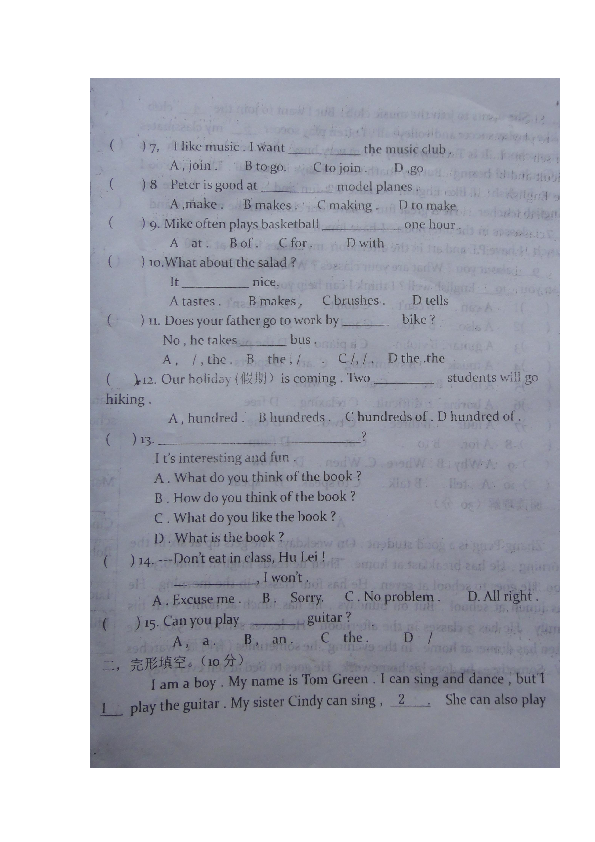 ( ) 7, I like music . I want ________ the music club .
A , join . B to go. C to join . D ,go
( ) 8 Peter is good at ________ model planes .
A ,make . B makes . C making . D to make
( ) 9. Mike often plays basketball ______ one hour .
A at . B of . C for . D with
( ) 10.What about the salad ?
It ________ nice.
A tastes . B makes , C brushes . D tells
( ) 11. Does your father go to work by ______ bike ?
No , he takes ______ bus .
A , / , the . B the , / . C /, / . D the .the
( ) 12. Our holiday (假期) is coming . Two ________ students will go
hiking .
A , hundred . B hundreds . C hundreds of . D hundred of .
( ) 13. ________________________?
I t's interesting and fun .
A . What do you think of the book ?
B . How do you think of the book ?
C . What do you like the book ?
D . What is the book ?
( ) 14. ---Don't eat in class, Hu Lei !
__________, I won't .
A . Excuse me . B . Sorry. C . No problem . D. All right .
( ) 15. Can you play ______ guitar ?
A , a . B , an . C the . D /
二, 完形填空。(10 分)
I am a boy . My name is Tom Green . I can sing and dance , but I
1 play the guitar . My sister Cindy can sing , 2 . She can also play